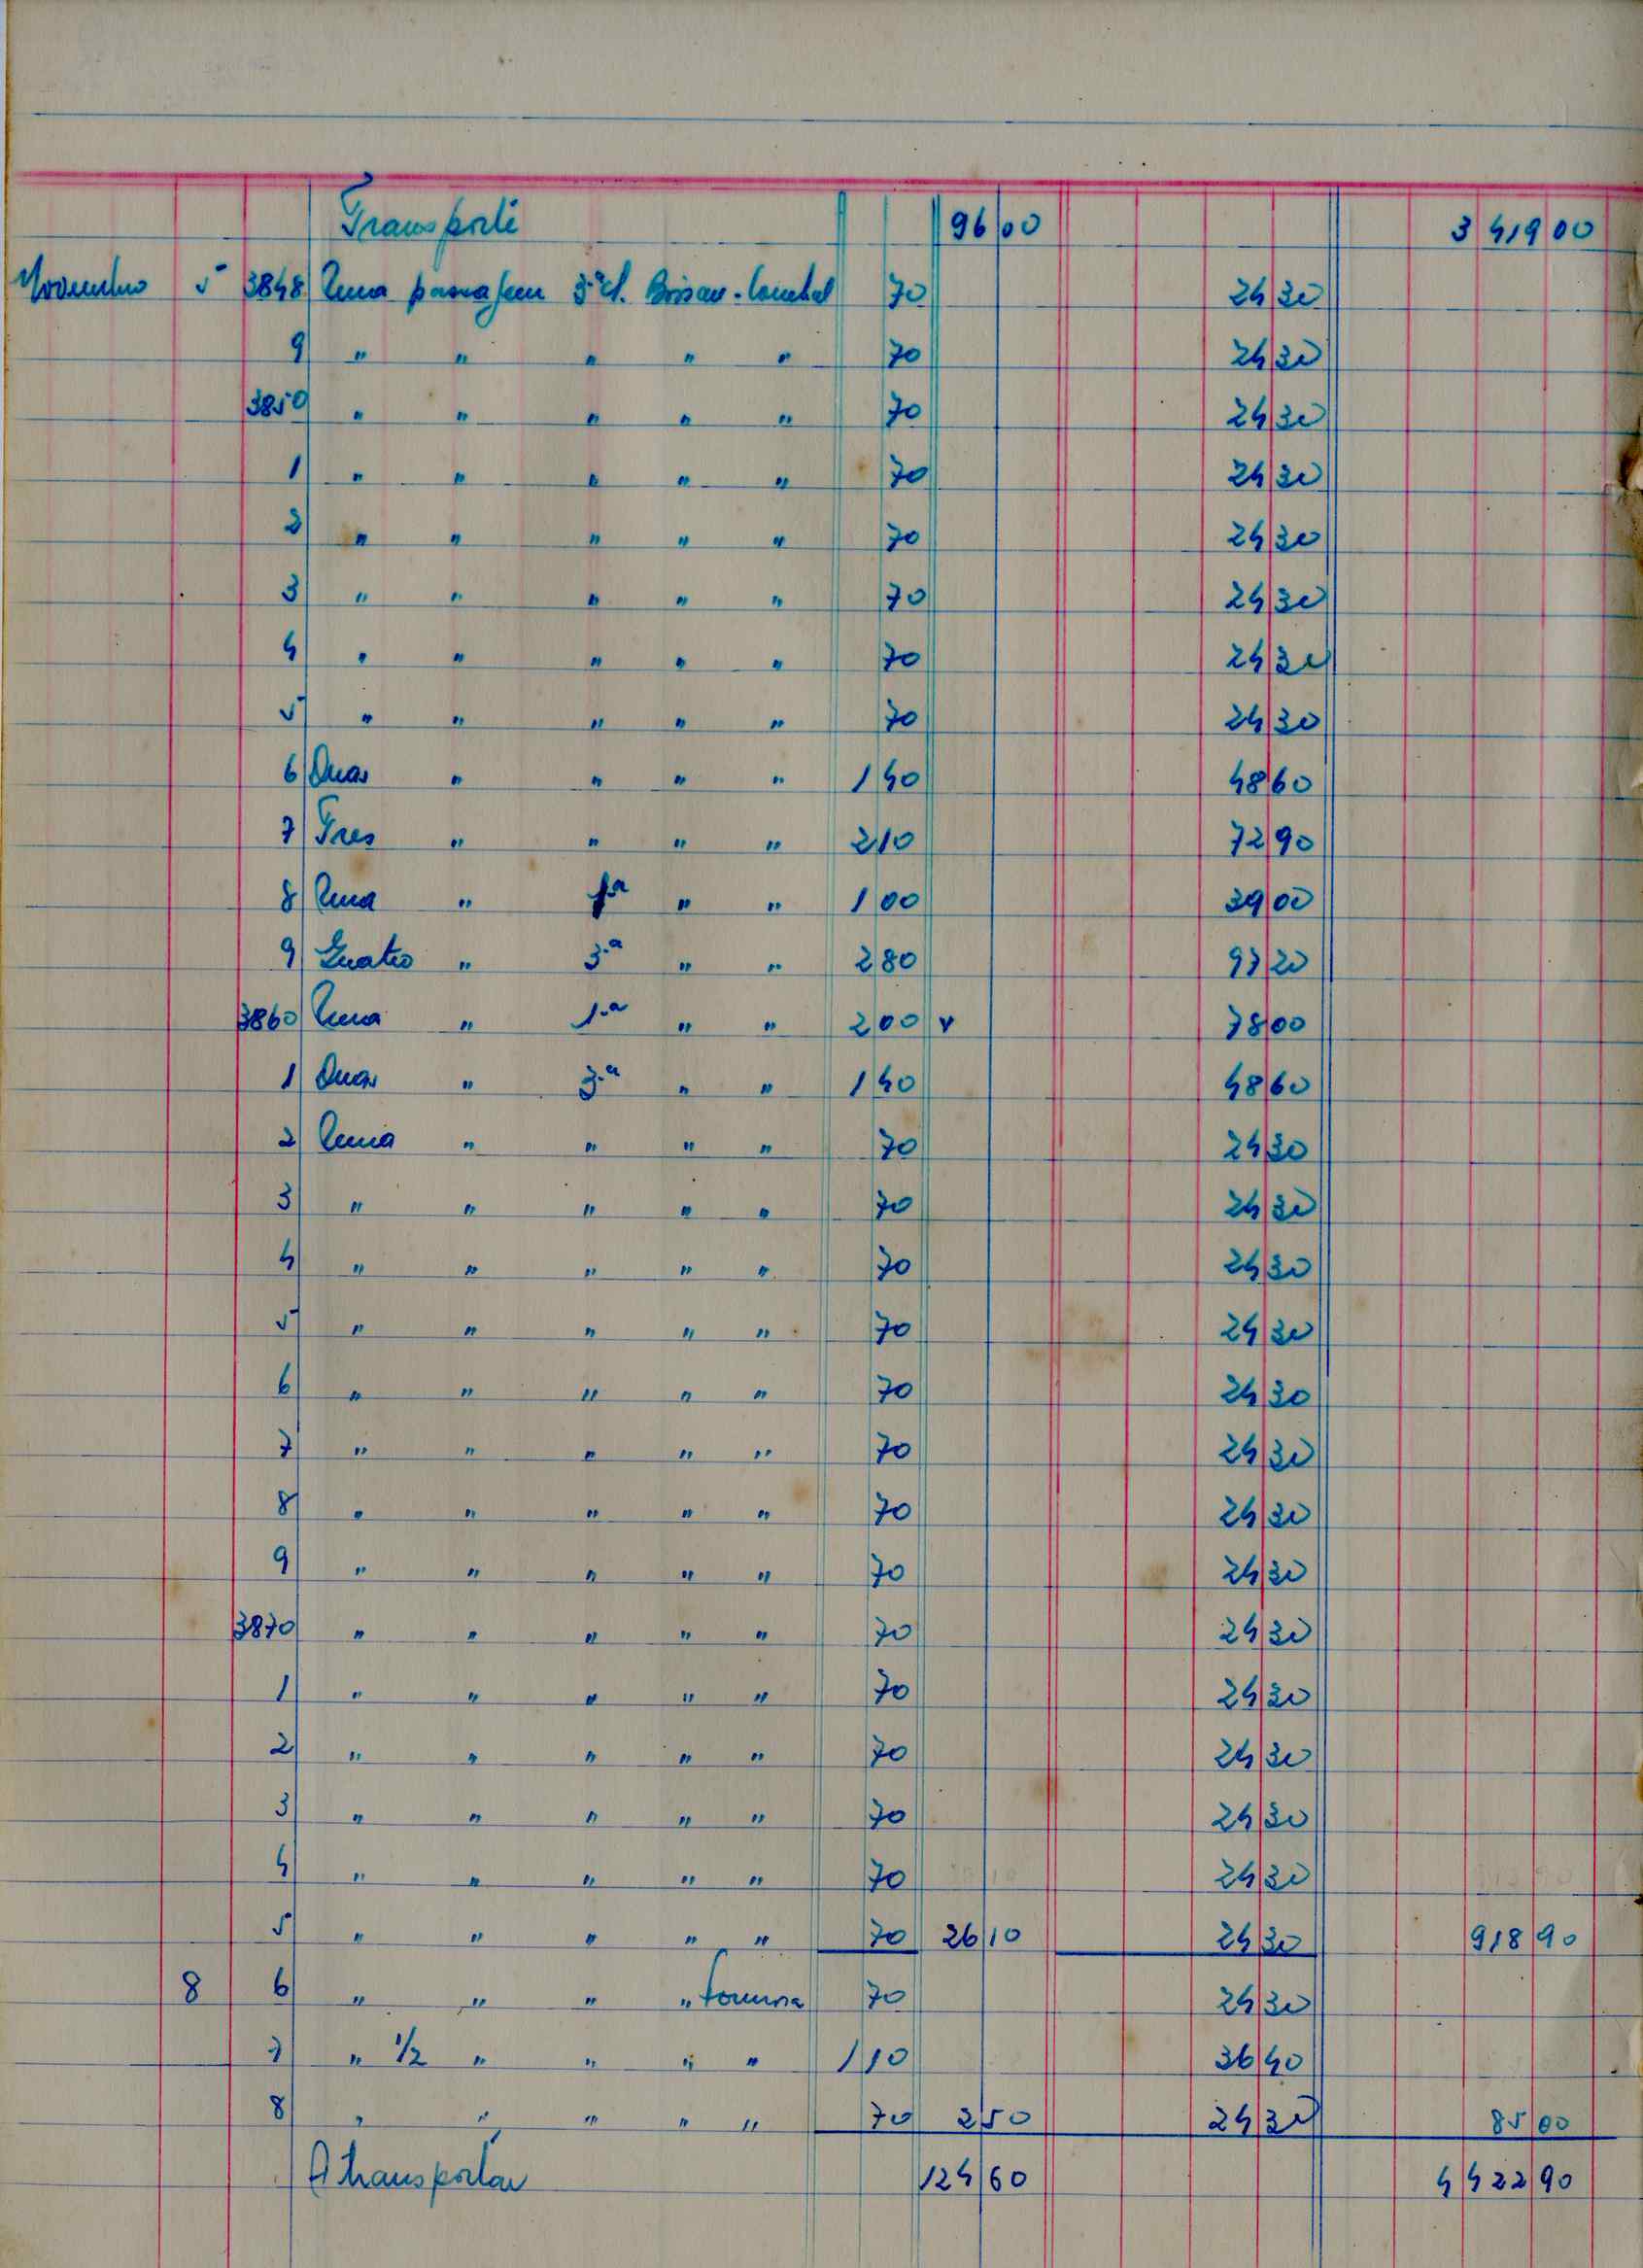 Transporte 96 00 3 419 00
Novembro 5 3848 Uma passagem 3ª cl. Bissau- 70 24 30
9 " " " " " 70 24 30
3850 " " " " " 70 24 30
1 " " " " " 70 24 30
2 " " " " " 70 24 30
3 " " " " " 70 24 30
4 " " " " " 70 24 30
5 " " " " " 70 24 30
6 Duas " " " " 1 40 48 60
7 Tres " " " " 2 10 72 90
8 Uma " 1ª " " 1 00 39 00
9 Quatro " 3.ª " " 2 80 97 20
3860 Uma " 1.ª " " 2 00 v 78 00
1 Duas " 3.ª " " 1 40 48 60
2 Uma " " " " 70 24 30
3 " " " " " 70 24 30
4 " " " " " 70 24 30
5 " " " " " 70 24 30
6 " " " " " 70 24 30
7 " " " " " 70 24 30
8 " " " " " 70 24 30
9 " " " " " 70 24 30
3870 " " " " " 70 24 30
1 " " " " " 70 24 30
2 " " " " " 70 24 30
3 " " " " " 70 24 30
4 " " " " " 70 24 30
5 " " " " " 70 26 10 24 30 918 90
8 6 " " " " 70 24 30
7 " 1/2 " " " " 1 10 36 40
8 " " " " " 70 2 50 24 30 85 00
A transportar 124 60 4 422 90